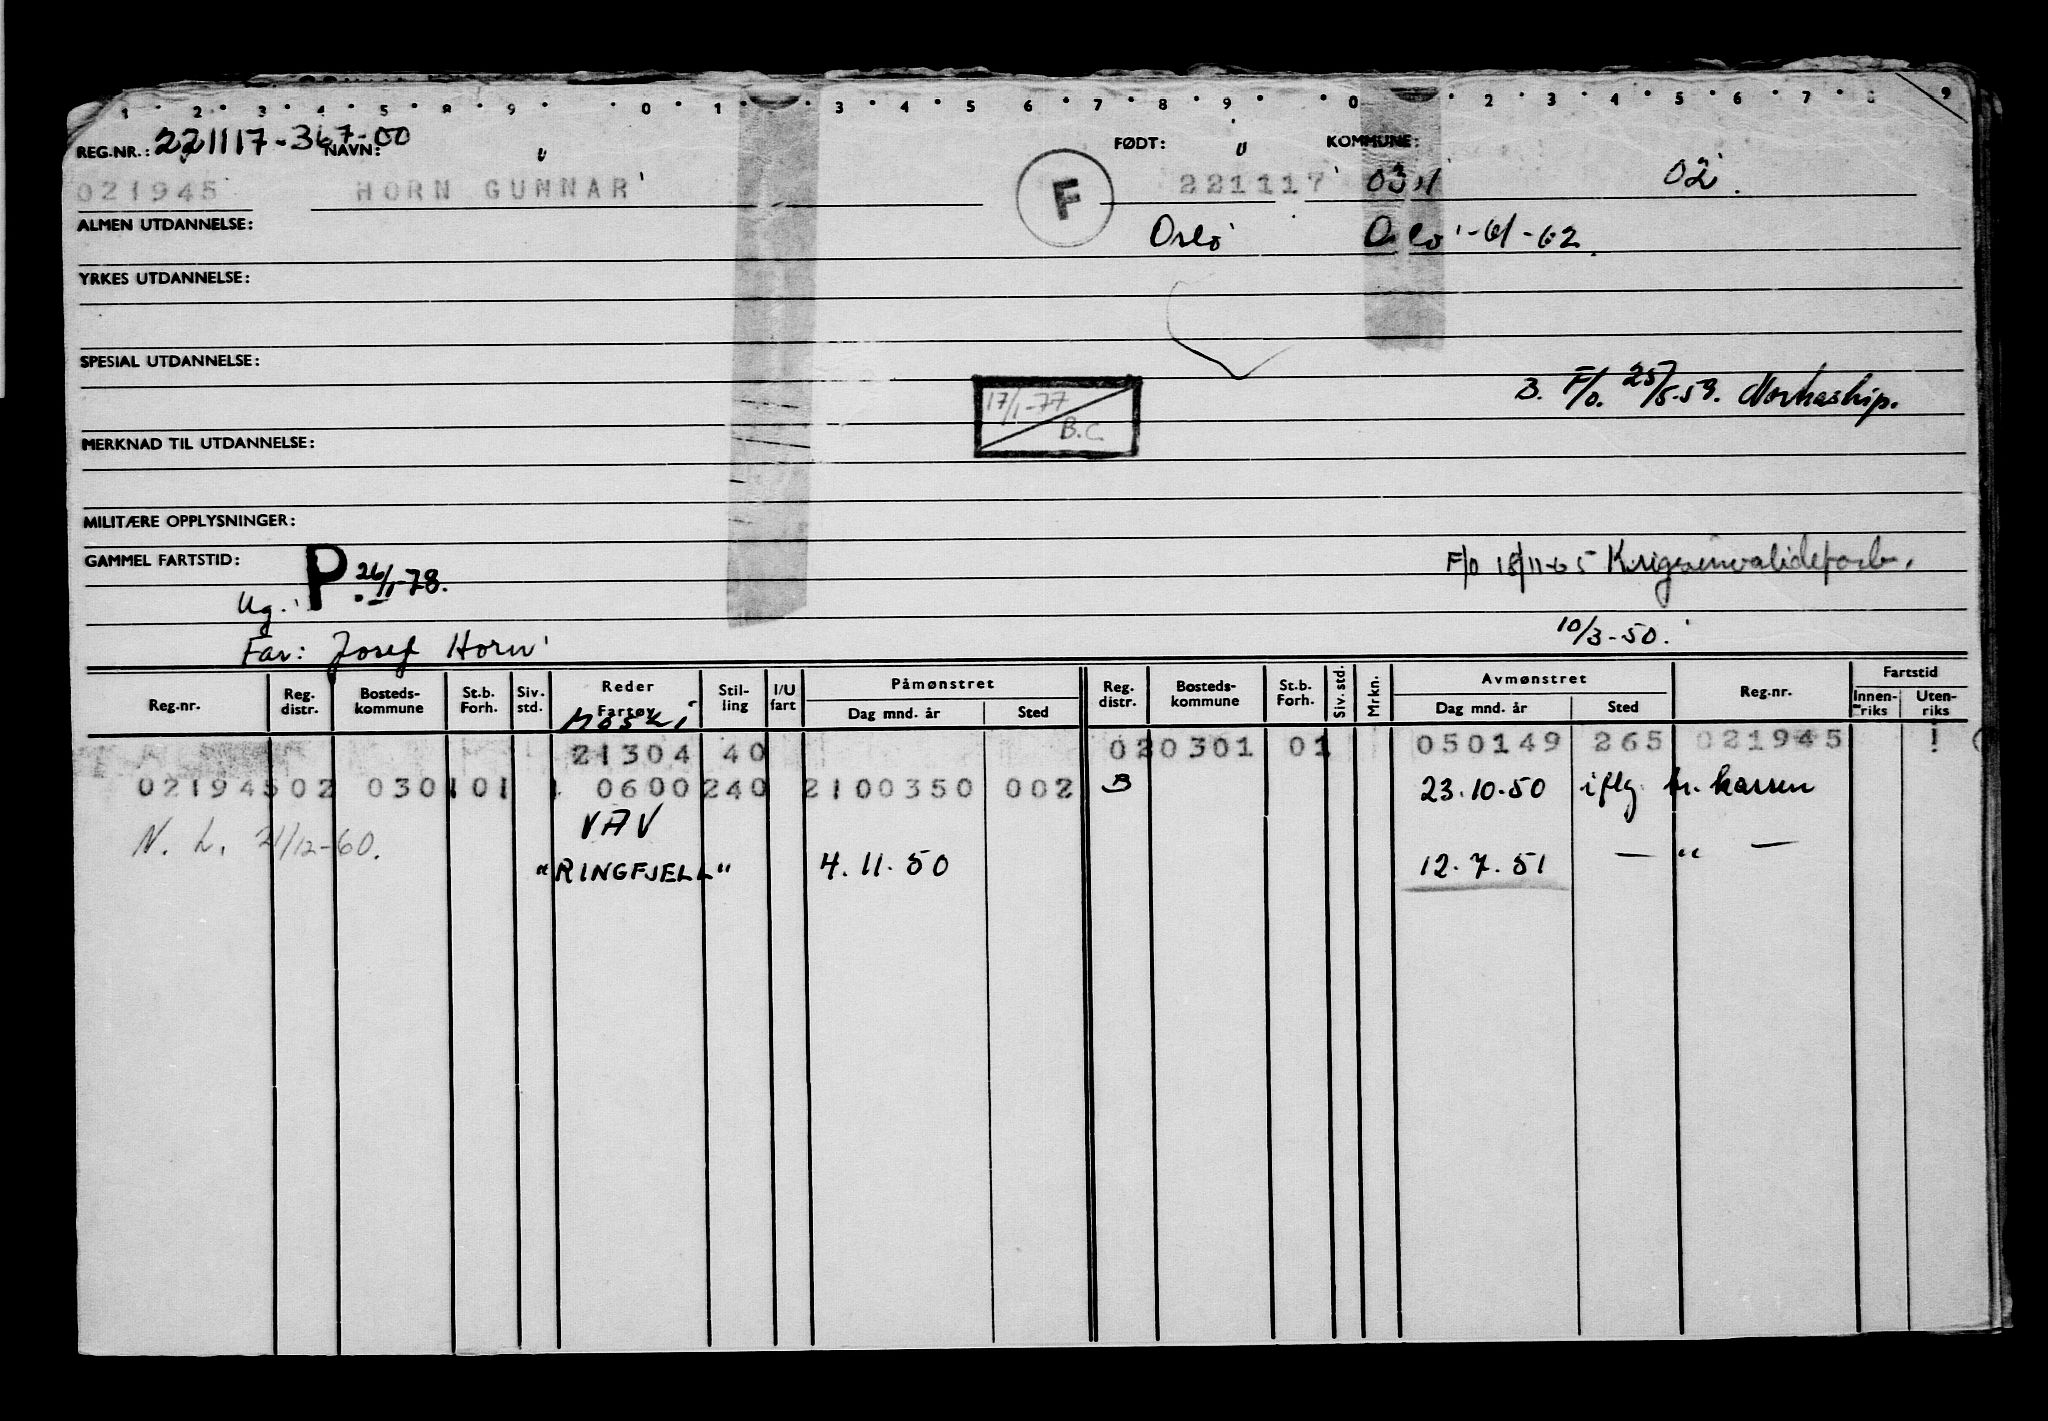 1 2 3 4 5 8 9 0 1 3 4 5 6 7 8 9 0 2 3 4 5 6 7 8 9
REG.NR.: 221117-367-00 NAVN: FØDT: KOMMUNE:
021945 HORN GUNNAR F 221117 0301 02
ALMEN UTDANNELSE: Oslo Oslo -61-62
YRKES UTDANNELSE:
SPESIAL UTDANNELSE:
B. F/o. 25/5-59. Nortraship.
17/1-77
B.C.
MERKNAD TIL UTDANNELSE:
MILITÆRE OPPLYSNINGER:
GAMMEL FARTSTID: P 26/1-78. F/o 18/11-65 Krigsinvalideforb.
Ug.
Far: Josef Horn 10/3-50.
Reg.nr. Reg. distr. Bosteds-kommune St.b. Forh. Siv. std. Reder Fartøy Stil-ling I/U fart Påmønstret Dag mnd. år Sted Reg. distr. Bosteds-kommune St.b. Forh. Siv. std. Mrkn. Avmønstret Dag mnd. år Sted Reg.nr. Fartstid Innen-riks Uten-riks
21304 40 020301 01 050149 265 021945
021945 02 0301 01 1 0600 240 2100350 002 B 23.10.50 iflg. br. kassen
VAV
N. L. 21/12-60.
"RINGFJELL" 4.11.50 12.7.51 — " —